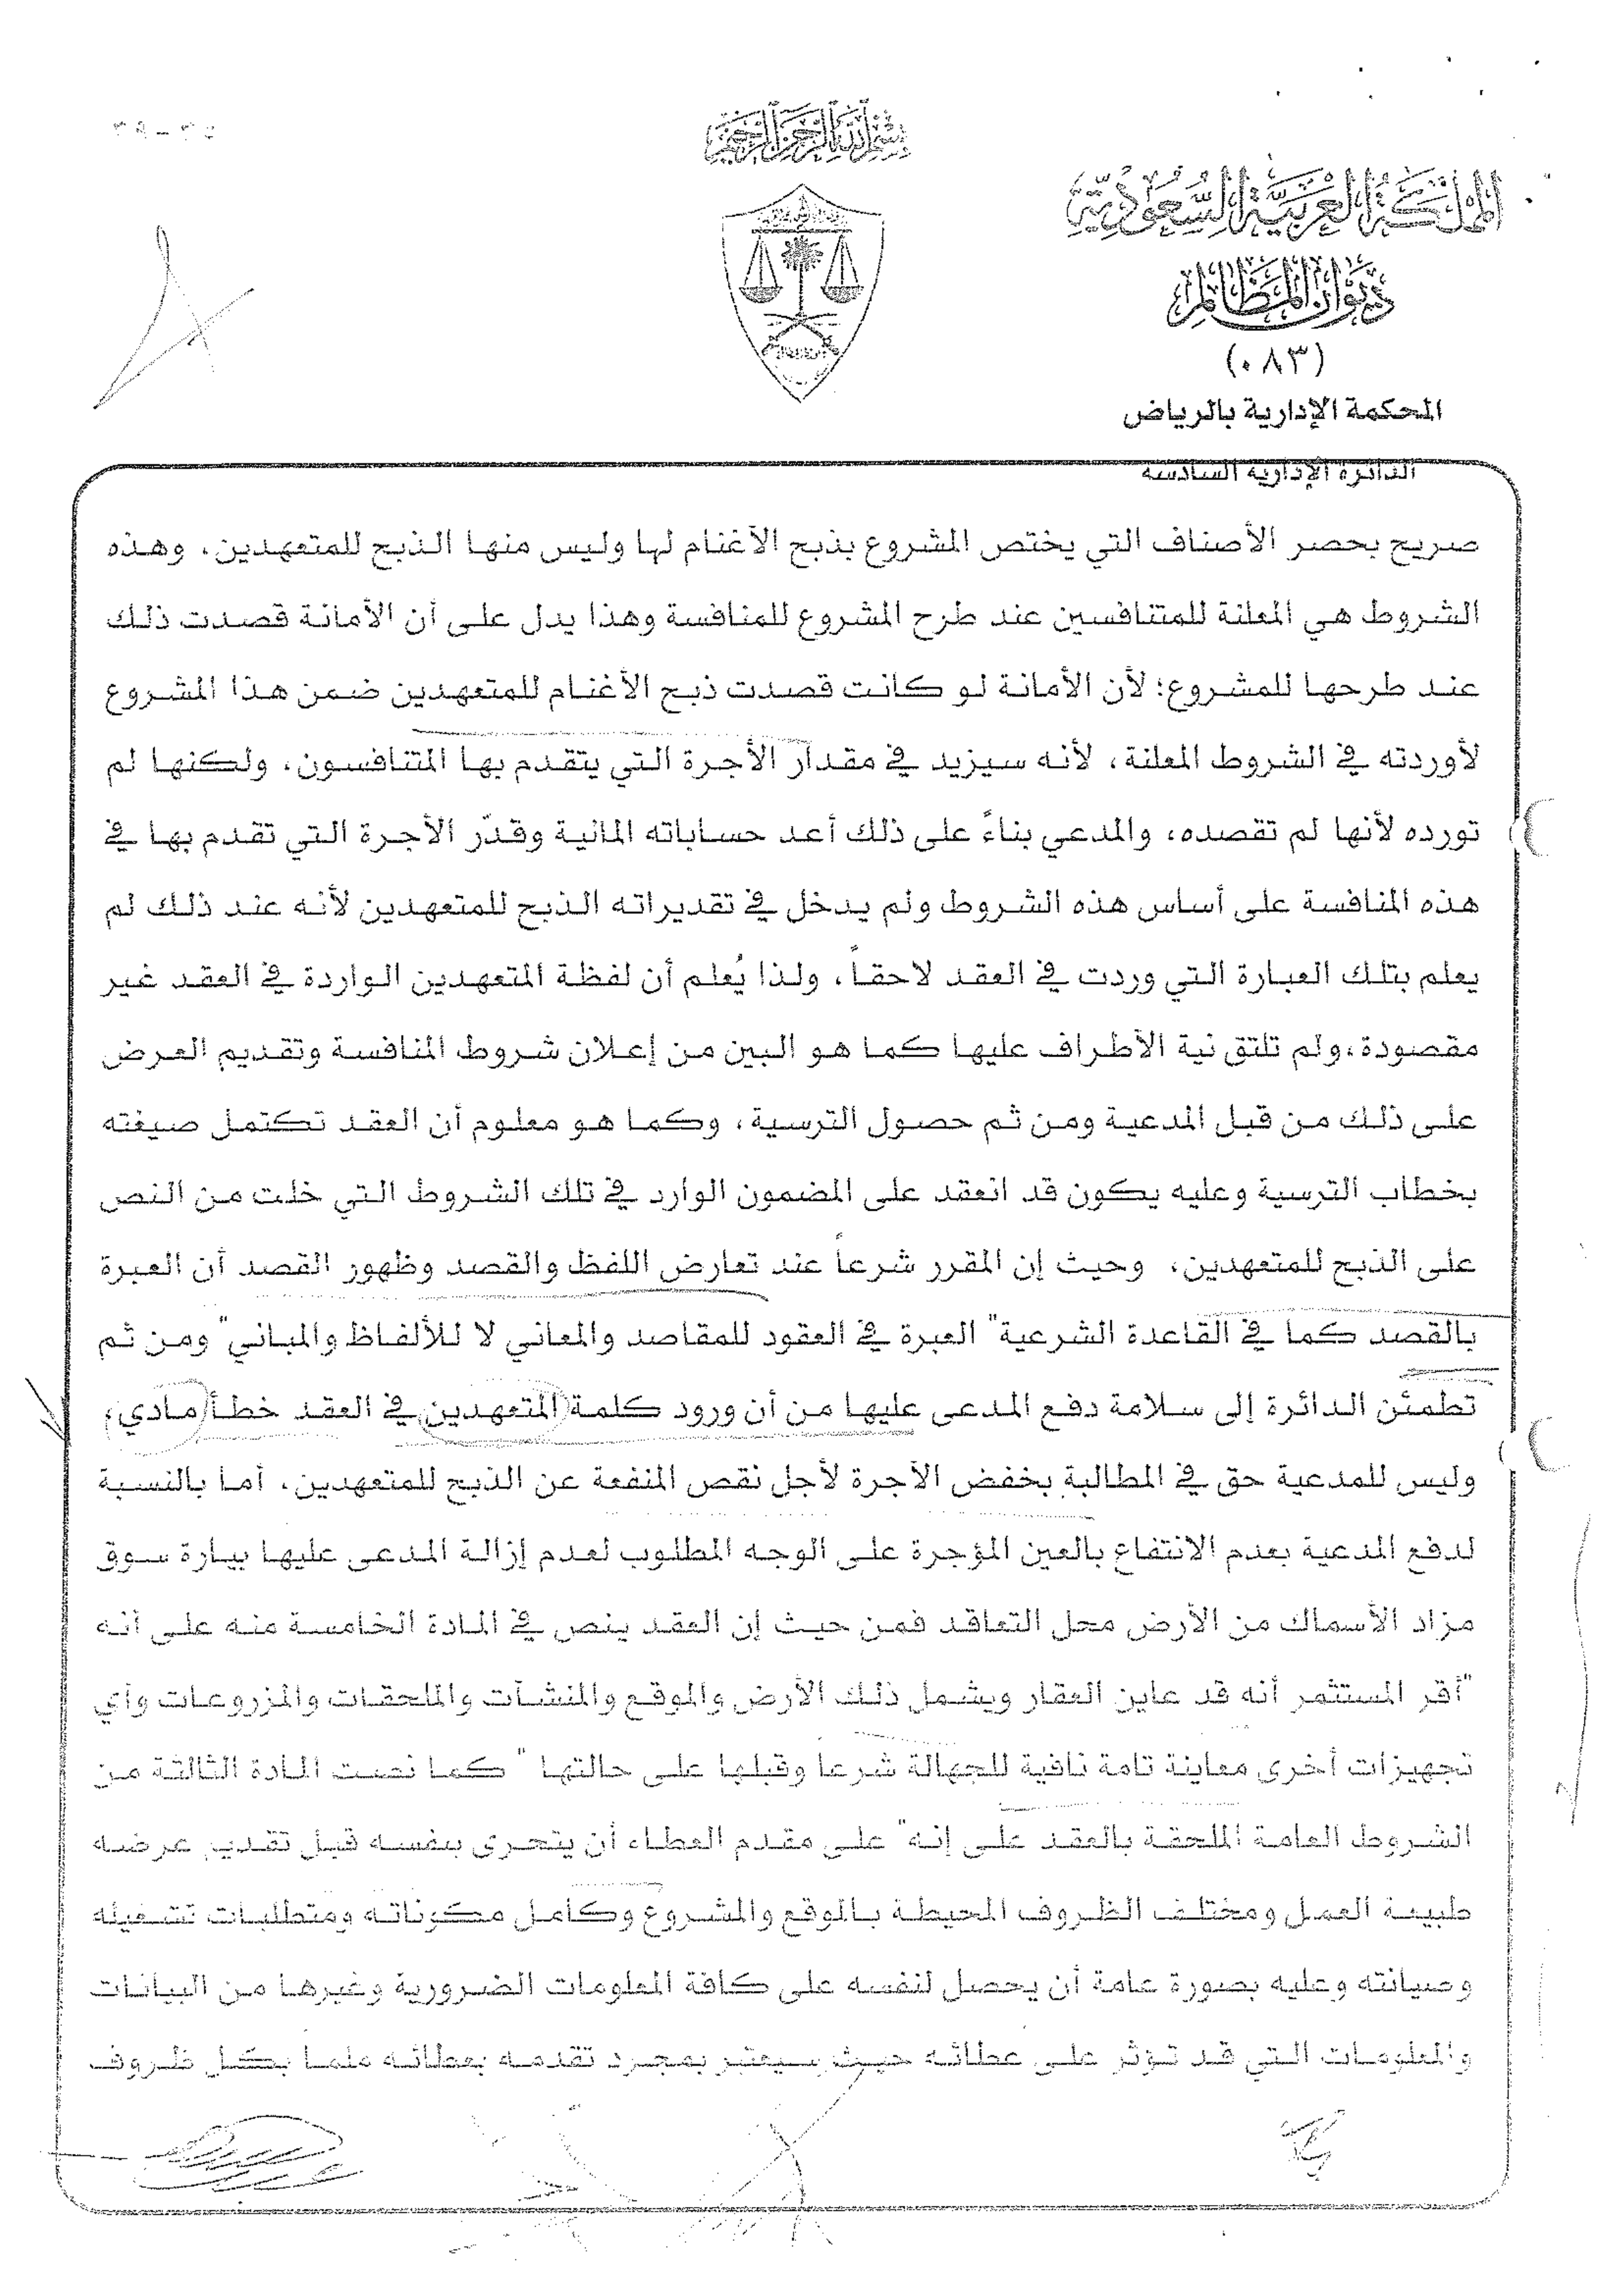 بسم الله الرحمن الرحيم
المملكة العربية السعودية
ديوان المظالم
(٠٨٣)
المحكمة الإدارية بالرياض
الدائرة الإدارية السادسة
صريح بحصر الأصناف التي يختص المشروع بذبح الأغنام لها وليس منها الذبح للمتعهدين، وهذه
الشروط هي المعلنة للمتنافسين عند طرح المشروع للمنافسة وهذا يدل على أن الأمانة قصدت ذلك
عند طرحها للمشروع؛ لأن الأمانة لو كانت قصدت ذبح الأغنام للمتعهدين ضمن هذا المشروع
لأوردته في الشروط المعلنة، لأنه سيزيد في مقدار الأجرة التي يتقدم بها المتنافسون، ولكنها لم
تورده لأنها لم تقصده، والمدعي بناءً على ذلك أعد حساباته المالية وقدّر الأجرة التي تقدم بها في
هذه المنافسة على أساس هذه الشروط ولم يدخل في تقديراته الذبح للمتعهدين لأنه عند ذلك لم
يعلم بتلك العبارة التي وردت في العقد لاحقاً، ولذا يُعلم أن لفظة المتعهدين الواردة في العقد غير
مقصودة،ولم تلتق نية الأطراف عليها كما هو البين من إعلان شروط المنافسة وتقديم العرض
على ذلك من قبل المدعية ومن ثم حصول الترسية، وكما هو معلوم أن العقد تكتمل صيغته
بخطاب الترسية وعليه يكون قد انعقد على المضمون الوارد في تلك الشروط التي خلت من النص
على الذبح للمتعهدين، وحيث إن المقرر شرعاً عند تعارض اللفظ والقصد وظهور القصد أن العبرة
بالقصد كما في القاعدة الشرعية" العبرة في العقود للمقاصد والمعاني لا للألفاظ والمباني" ومن ثم
تطمئن الدائرة إلى سلامة دفع المدعى عليها من أن ورود كلمة المتعهدين في العقد خطأ مادي،
وليس للمدعية حق في المطالبة بخفض الأجرة لأجل نقص المنفعة عن الذبح للمتعهدين، أما بالنسبة
لدفع المدعية بعدم الانتفاع بالعين المؤجرة على الوجه المطلوب لعدم إزالة المدعى عليها بيارة سوق
مزاد الأسماك من الأرض محل التعاقد فمن حيث إن العقد ينص في المادة الخامسة منه على أنه
"أقر المستثمر أنه قد عاين العقار ويشمل ذلك الأرض والموقع والمنشآت والملحقات والمزروعات وأي
تجهيزات أخرى معاينة تامة نافية للجهالة شرعا وقبلها على حالتها " كما نصت المادة الثالثة من
الشروط العامة الملحقة بالعقد على إنه" على مقدم العطاء أن يتحرى بنفسه قبل تقديم عرضه
طبيعة العمل ومختلف الظروف المحيطة بالموقع والمشروع وكامل مكوناته ومتطلبات تشغيله
وصيانته وعليه بصورة عامة أن يحصل لنفسه على كافة المعلومات الضرورية وغيرها من البيانات
والمعلومات التي قد تؤثر على عطائه حيث سيعتبر بمجرد تقدمه بعطائه ملما بكل ظروف